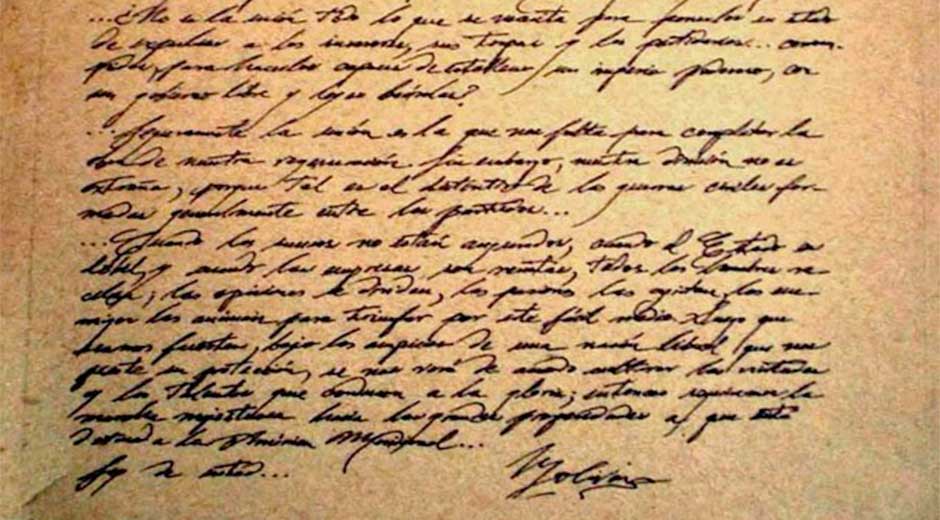 ...¿No es la unión todo lo que se necesita para ponerlos en estado
de expulsar a los invasores, sus tropas y los partidarios... corrom-
pidos, para hacerlos capaces de establecer un imperio poderoso, con
un gobierno libre y leyes benévolas?
...Seguramente la unión es la que nos falta para completar la
obra de nuestra regeneración. Sin embargo, nuestra división no es
extraña, porque tal es el distintivo de las guerras civiles for-
madas generalmente entre los partidos...
...Cuando los sucesos no están asegurados, cuando el Estado es
débil y cuando las empresas son remotas, todos los hombres va-
cilan; las opiniones se dividen, las pasiones las agitan, los ene-
migos las animan para triunfar por este fácil medio. Luego que
seamos fuertes, bajo los auspicios de una nación liberal que nos
preste su protección, se nos verá de acuerdo cultivar las virtudes
y los talentos que conducen a la gloria; entonces seguiremos la
marcha majestuosa hacia las grandes prosperidades a que está
destinada la América Meridional...
Soy de usted...
Bolívar